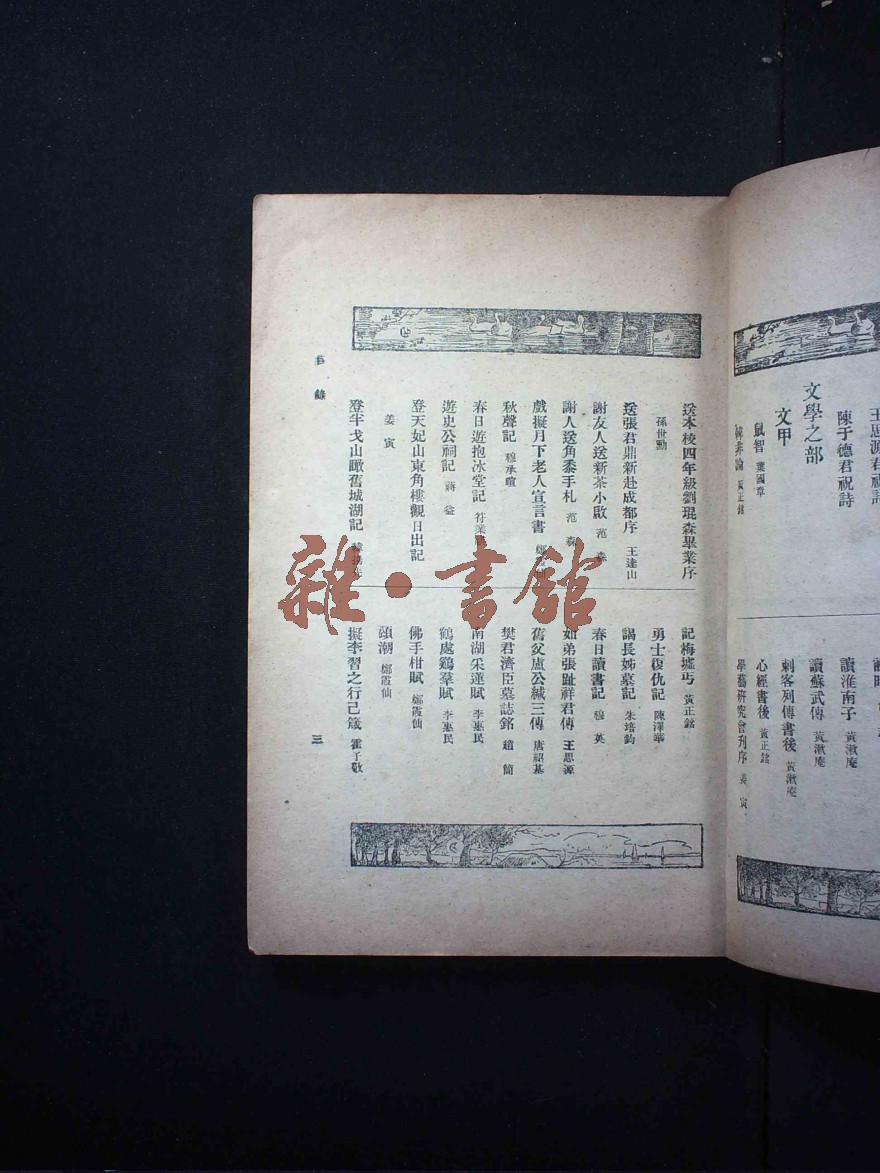 陳于德君祝詩
文學之部
文甲
鼠智 龔國章
韓非論 黃正銘
讀淮南子 黃漱庵
讀蘇武傳 黃漱庵
刺客列傳書後 黃漱庵
心經書後 黃正銘
學藝研究會刋序 姜寅
目錄
送本校四年級劉琨森畢業序
孫世勳
送張君鼎新赴成都序 王達山
謝友人送新茶小啟 范森
謝人送角黍手札 范森
戲擬月下老人宣言書
秋聲記 穆承暄
春日遊抱冰堂記
遊史公祠記 蔣鎰
登天妃山東角樓觀日出記
姜寅
登半戈山瞰舊城湖記
記梅墟丐 黃正銘
勇士復仇記 陳澤華
謁長姊墓記 朱培鈞
春日讀書記 穆英
如弟張趾祥君傳 王思源
舊友盧公緘三傳 唐紹基
樊君濟臣墓誌銘 趙簡
南湖采蓮賦 李惠民
鶴處鷄羣賦 李惠民
佛手柑賦 鄭霞仙
頌潮 鄭霞仙
擬李習之行己箴 霍子敬
三
雜·書館